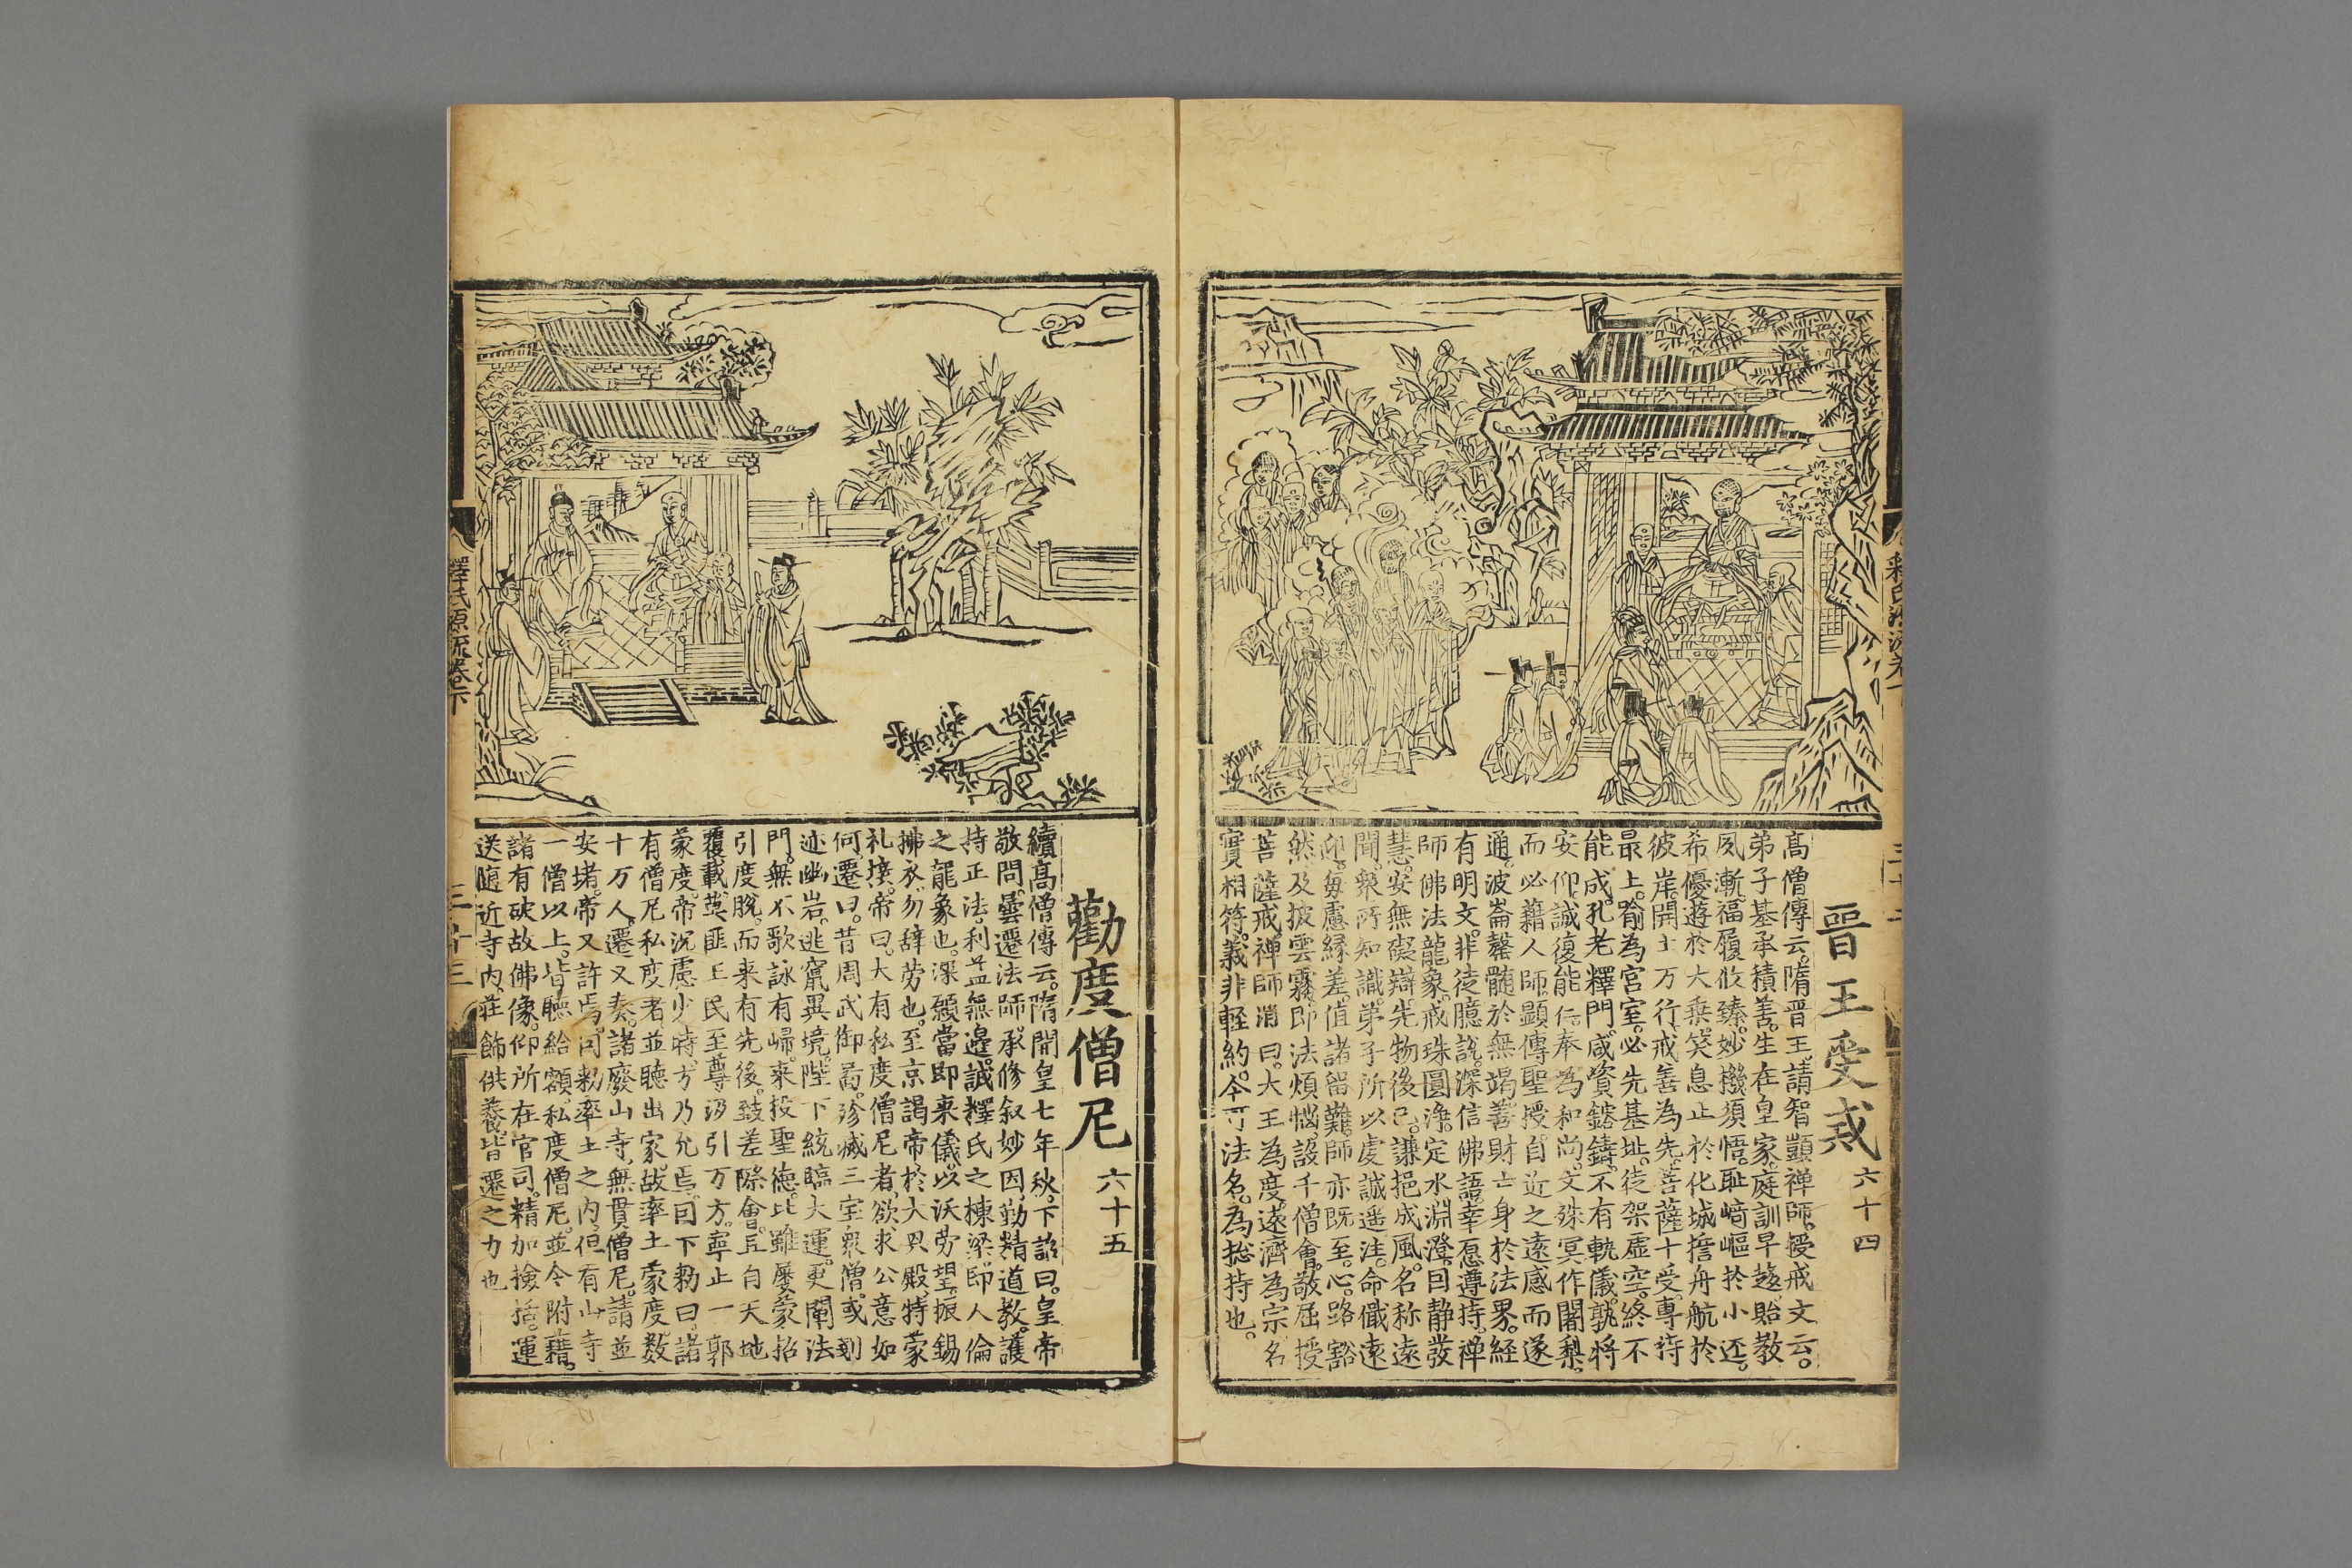 晋王受戒 六十四
高僧傳云。隋晋王。請智顗禅師。授戒文云。
弟子基承積善。生在皇家。庭訓早趍。貽教
夙漸。福履攸臻。妙機須悟。耻﨑嶇扵小逕。
希優遊於大乗。笑息止於化城。擔舟航於
彼岸。開士万行。戒善為先。菩薩十受。專持
最上。喻為宮室。必先基址。徒架虛空。終不
能成。孔老釋門。咸資鎔鑄。不有軌儀。孰將
安仰。誠復能仁。奉為和尚。文殊冥作闍梨。
而必藉人師。顯傳聖授。自近之遠。感而遂
通。波崙罄髓於無竭。善財亡身於法界。経
有明文。非徒臆說。深信佛語。幸愿遵持。禅
師佛法龍象。戒珠圓浄。定水淵澄。因静發
慧。安無礙辯。先物後己。謙挹成風。名称遠
聞。衆所知識。弟子所以虔誠遥注。命檝遠
迎。每慮縁差。值諸留難。師亦既至。心路豁
然。及披雲霧。即法煩惱。設千僧會。敬屈授
菩薩戒。禅師消曰。大王為度遠濟。為宗名
實相符。義非軽約。今可法名。為捴持也。
勸度僧尼 六十五
續高僧傳云。隋開皇七年秋。下詔曰。皇帝
敬問。曇遷法師。承修叙妙因。勤精道教。護
持正法。利益無邊。誠釋氏之棟梁。即人倫
之龍象也。深願當即来儀。以沃勞望。振錫
拂衣。勿辞勞也。至京謁帝於大興殿。特蒙
礼接。帝曰。大有私度僧尼者。欲求公意如
何。遷曰。昔周武御㝢。殄滅三宝。衆僧。或剗
迹幽岩。逃竄異境。陛下統臨大運。更闡法
門。無不歌詠有歸。来投聖德。比雖屢蒙招
引度脫。而来有先後。致差際會。且自天地
覆載。莫匪王民。至尊汲引万方。寧止一郭
蒙度。帝沉慮少時。方乃允焉。因下勑曰。諸
有僧尼私度者。並聽出家。故率土蒙度。数
十万人。遷又奏。諸廢山寺。無貫僧尼。請並
安堵。帝又許焉。同勑率土之内。但有山寺
一僧以上。皆聽給額。私度僧尼。並令附藉。
諸有破故佛像。仰所在官司。精加撿括。運
送随近寺内。莊飾供養。皆遷之力也
釋氏源流卷下
三十三